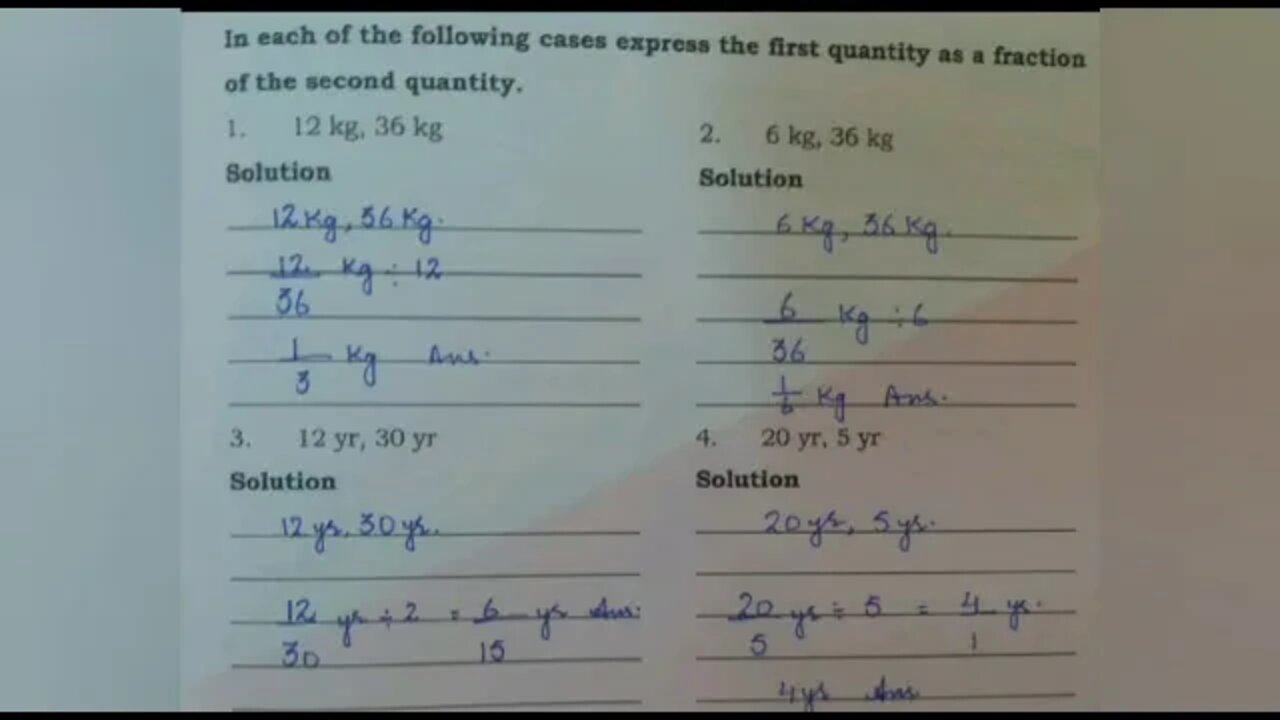 In each of the following cases express the first quantity as a fraction
of the second quantity.
1. 12 kg, 36 kg
Solution
12 Kg, 36 Kg.
12/36 Kg ÷ 12
1/3 Kg Ans.
2. 6 kg, 36 kg
Solution
6 Kg, 36 Kg.
6/36 Kg ÷ 6
1/6 Kg Ans.
3. 12 yr, 30 yr
Solution
12 yr, 30 yr.
12/30 yr ÷ 2 = 6/15 yr Ans.
4. 20 yr, 5 yr
Solution
20 yr, 5 yr.
20/5 yr ÷ 5 = 4/1 yr.
4 yr Ans